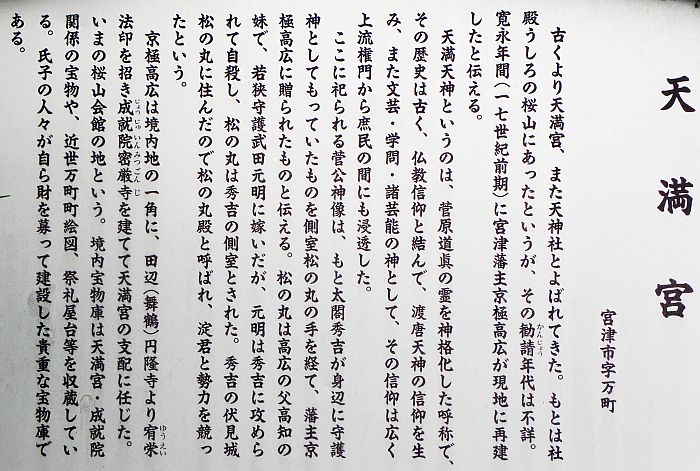 天満宮
宮津市字万町
古くより天満宮、また天神社とよばれてきた。もとは社
殿うしろの桜山にあったというが、その勧請年代は不詳。
かんじょう
寛永年間(一七世紀前期)に宮津藩主京極高広が現地に再建
したと伝える。
天満天神というのは、菅原道眞の霊を神格化した呼称で、
その歴史は古く、仏教信仰と結んで、渡唐天神の信仰を生
み、また文芸・学問・諸芸能の神として、その信仰は広く
上流権門から庶民の間にも浸透した。
ここに祀られる菅公神像は、もと太閤秀吉が身辺に守護
神としてもっていたものを側室松の丸の手を経て、藩主京
極高広に贈られたものと伝える。松の丸は高広の父高知の
妹で、若狭守護武田元明に嫁いだが、元明は秀吉に攻めら
れて自殺し、松の丸は秀吉の側室とされた。秀吉の伏見城
松の丸に住んだので松の丸殿と呼ばれ、淀君と勢力を競っ
たという。
京極高広は境内地の一角に、田辺(舞鶴)円隆寺より宥栄
ゆうえい
法印を招き成就院密厳寺を建てて天満宮の支配に任じた。
じょうじゅいんみつごんじ
いまの桜山会館の地という。境内宝物庫は天満宮・成就院
関係の宝物や、近世万町町絵図、祭礼屋台等を収蔵してい
る。氏子の人々が自ら財を募って建設した貴重な宝物庫で
ある。